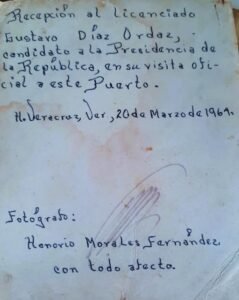 Recepción al Licenciado
Gustavo Díaz Ordaz,
candidato a la Presidencia de
la República, en su visita ofi-
cial a este Puerto.
H. Veracruz, Ver, 20 de Marzo de 1964.
Fotógrafo:
Honorio Morales Fernández
con todo afecto.